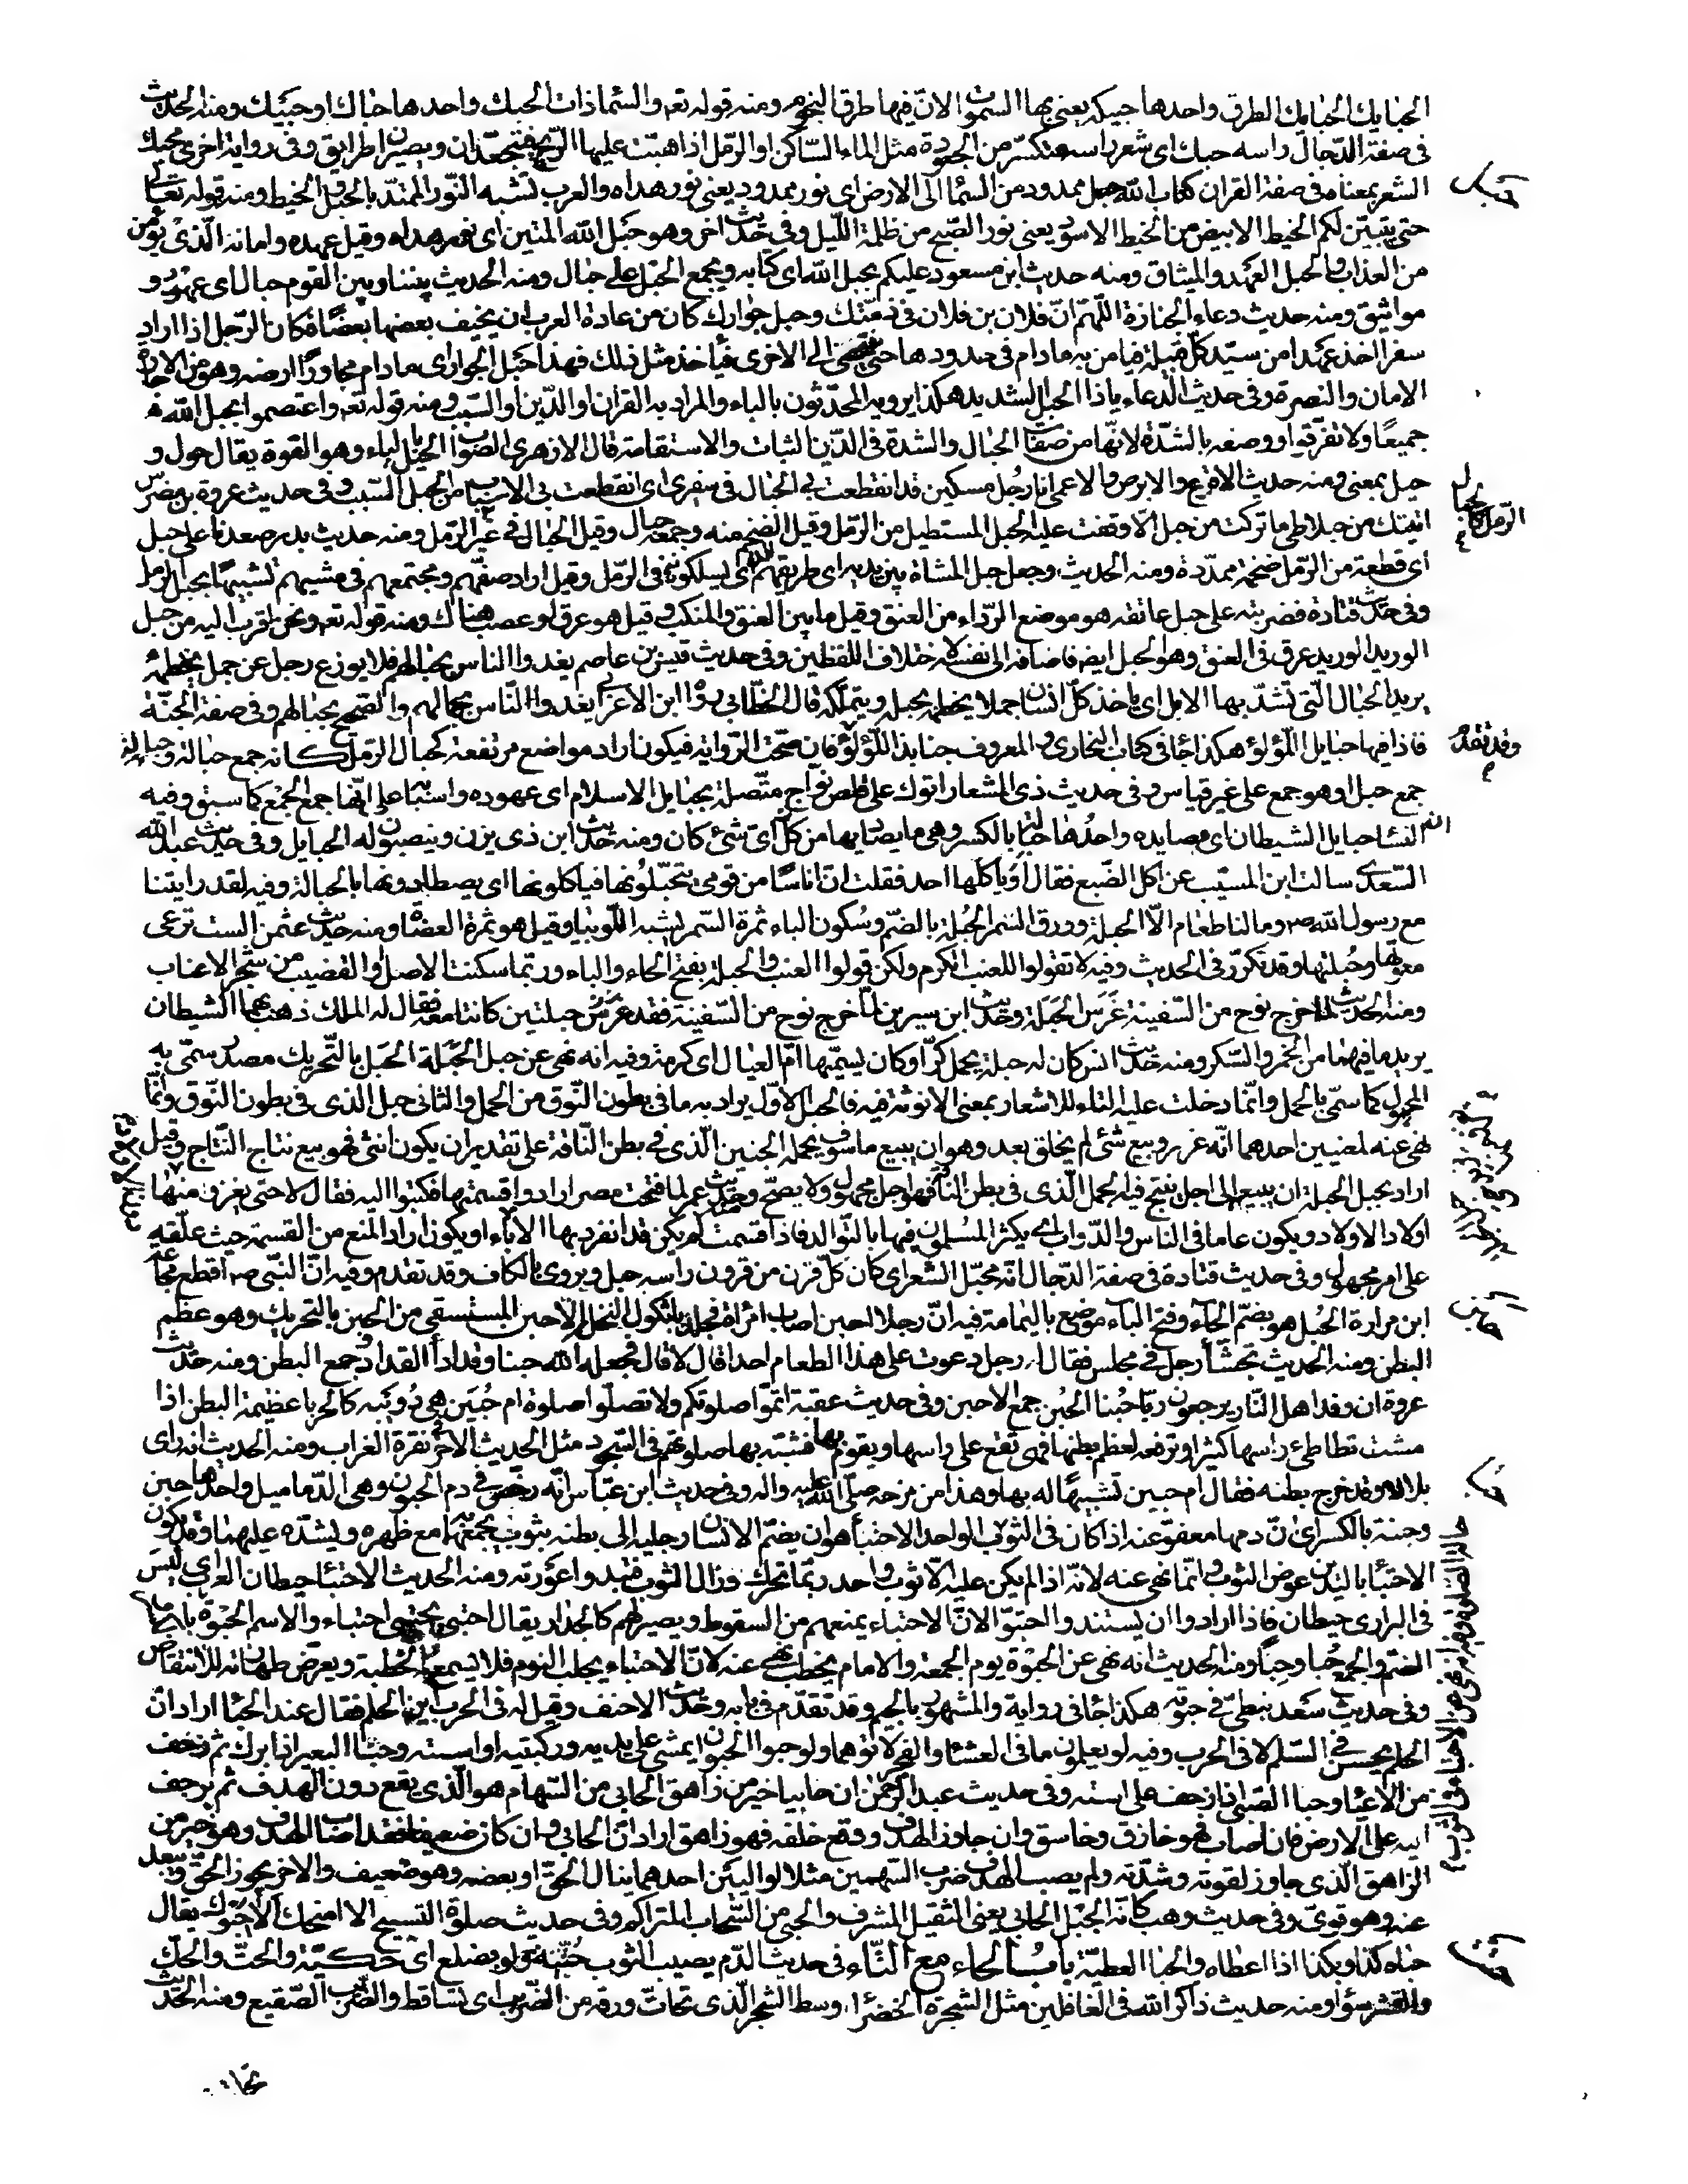 الحبايك الحبايك الطرق واحدها حبيكه يعنى بها السموات لانّ فيها طرق النجوم ومنه قوله تعه والسّما ذات الحبك واحدها حباك او حبيك ومنه الحديث
فى صفة الدّجال راسه حبك اى شعر راسه متكسّر من الجعودة مثل الماء السّاكن او الرّمل اذا هبّت عليها الرّيح فيتجعّدان ويصيران طرايق وفى رواية اخرى محبّك
الشعر بمعناه فى صفة القران كتاب الله حبل ممدود من السّما الى الارض اى نور ممدود يعنى نور هداه والعرب تشبه النّور الممتدّ بالحبل والخيط ومنه قوله تعالى
حتى يتبيّن لكم الخيط الابيض من الخيط الاسود يعنى نور الصّبح من ظلمة اللّيل وفى حديث اخر وهو حبل الله المتين اى نور هداه وقيل عهده وامانه الّذى يؤمن
من العذاب والحبل العهد والميثاق ومنه حديث ابن مسعود عليكم بحبل الله اى كتابه ويجمع الحبل على حبال ومنه الحديث بيننا وبين القوم حبال اى عهود و
مواثيق ومنه حديث دعاء الجنازة اللّهمّ انّ فلان بن فلان فى ذمّتك وحبل جوارك كان من عادة العرب ان يخيف بعضها بعضًا فكان الرّجل اذا اراد
سفرا اخذ عهدا من سيّد كلّ قبيلة فيامن به مادام فى حدودها حتى ينتهى الى الاخرى فيأخذ مثل ذلك فهذا حبل الجوار اى مادام مجاورًا ارضه وهو من الاجارة
الامان والنصرة وفى حديث الدّعاء ياذا الحبل الشديد هكذا يرويه المحدّثون بالباء والمراد به القران او الدّين او السّبب ومنه قوله تعه واعتصموا بحبل الله
جميعًا ولا تفرّقوا ووصفه بالشدّة لانّها من صفات الحبال والشدة فى الدّين الثبات والاستقامة قال الازهرى الصّواب الحيل بالياء وهو القوة يقال حول و
حيل بمعنى ومنه حديث الاقرع والابرص والاعمى انا رجل مسكين قد انقطعت بى الحبال فى سفرى اى انقطعت بى الاسباب من الحبل السّبب وفى حديث عروة بن مضرّس
اتيتك من جبلى طى ما تركت من حبل الّا وقفت عليه الحبل المستطيل من الرّمل وقيل الضّخم منه وجمعه حبال وقيل الحبال فى غير الرّمل ومنه حديث بدر صعدنا على حبل
اى قطعة من الرّمل ضخمة ممدّدة ومنه الحديث وجعل حبل المشاة بين يديه اى طريقهم الذى يسلكونه فى الرّمل وقيل اراد صفّهم ومجتمعهم فى مشيهم تشبيهًا بحبل الرمل
وفى حديث قتادة فضربته على حبل عاتقه هو موضع الرّداء من العنق وقيل ما بين العنق والمنكب وقيل هو عرق او عصب هناك ومنه قوله تعه ونحن اقرب اليه من حبل
الوريد الوريد عرق فى العنق وهو الحبل ايضا فاضافه الى نفسه لاختلاف اللفظين وفى حديث قيس بن عاصم يغدوا الناس بحبالهم فلا يوزع رجل عن جمل يخطمه
يريد الحبال الّتى تشدّ بها الابل اى ياخذ كلّ انسان جملا يخطمه بحبله ويتملّكه قال الخطّابى رواه ابن الاعرابى يغدوا النّاس بجمالهم والصّحيح بحبالهم وفى صفة الجنّة
فاذا فيها حبايل اللّؤلؤ هكذا جاء فى كتاب البخارى والمعروف جنابذ اللّؤلؤ فان صحّت الرّواية فيكون اراد مواضع مرتفعة كحبال الرّمل كانه جمع حبالة وحبالة
جمع حبل او هو جمع على غير قياس وفى حديث ذى المشعار اتوك على قلص نواج متّصلة بحبايل الاسلام اى عهوده واسبابه على انّها جمع الجمع كما سبق وفيه
النسا حبايل الشيطان اى مصايده واحدها حبالة بالكسر وهى ما يصاد بها من كلّ اىّ شئ كان ومنه حديث ابن ذى يزن وينصبون له الحبايل وفى حديث عبد الله
السّعدى سالت ابن المسيّب عن اكل الضّبع فقال اَوَ ياكلها احد فقلت انّ اناسًا من قومى يتحبّلونها فياكلونها اى يصطادونها بالحبالة وفيه لقد رايتنا
مع رسول الله صه وما لنا طعام الّا الحبلة وورق السّمر الحُبلة بالضّم وسُكون الباء ثمرة السّمر يشبه اللّوبيا وقيل هو ثمرة العضاه ومنه حديث عثمن الست ترعى
معوتها وحُبلتها وقد تكرّر فى الحديث وفيه لا تقولوا للعنب الكرم ولكن قولوا العنب والحبلة بفتح الحاء والباء وربّما سكنت الاصل او القضيب من شجر الاعناب
ومنه الحديث لمّا خرج نوح من السّفينة غَرَسَ الحَبَلة وحديث ابن سيرين لمّا خرج نوح من السّفينة فقد غَرَسَ حبلتين كانتا معه فقال له الملك ذهب بهما الشيطان
يريد ما فيهما من الخمر والسّكر ومنه حديث انس كان له حبلة يحمل كرّا وكان يسمّيها امّ العيال اى كرمة وفيه انه نهى عن حبل الحَبَلة الحَبَل بالتّحريك مصدر سمّى به
المحمول كما سمّى بالحمل وانّما دخلت عليه التاء للاشعار بمعنى الانوثة فيه فالحبل الاوّل يراد به ما فى بطون النّوق من الحمل والثانى حبل الذى فى بطون النّوق وانّما
نهى عنه لمعنيين احدهما انّه غرر وبيع شئ لم يخلق بعد وهو ان يبيع ما سوف يحمله الجنين الّذى فى بطن النّاقة على تقدير ان يكون انثى فهو بيع نتاج النّتاج وقيل
اراد بحبل الحبلة ان يبيعه الى اجل ينتج فيه الحمل الّذى فى بطن النّاقة فهو اجل مجهول ولا يصحّ وحديث عمر لما فتحت مصر ارادوا قسمتها فكتبوا اليه فقال لا حتى يغزى منها
اولاد الاولاد ويكون عاما فى الناس والدّواب اى يكثر المسلمون فيها بالتّوالد فاذا قسمت لم يكن قد انفرد بها الآباء او يكون اراد المنع من القسمة حيث علّقه
على امر مجهول وفى حديث قتادة فى صفة الدّجال انّه محبّل الشعر اى كان كلّ قرن من قرون راسه حبل ويروى بالكاف وقد تقدم وفيه انّ النّبى صه اقطع مجّاعة
ابن مرارة الحُبل هو بضمّ الحاء وفتح الباء موضع باليمامة فيه انّ رجلا احبن اصاب امراة فجلد باثكول النخل الاحبن المستسقى من الحبن بالتحريك وهو عظم
البطن ومنه الحديث تجشّأ رجل فى مجلس فقال له رجل دعوت على هذا الطعام احدا قال لا قال فجعله الله حبنا وقدادا القداد وجع البطن ومنه حديث
عروة ان وفد اهل النّار يرجعون زبّا حُبنا الحُبن جمع الاحبن وفى حديث عقبة اتمّوا صلوتكم ولا تصلّوا صلوة ام حُبَين هى دُوَيبّه كالحربا عظيمة البطن اذا
مشت تطاطئ راسها كثيرا وترفعه لعظم بطنها فهى تقع على راسها ويقوم بها فشبّه بها صلوتهم فى السّجود مثل الحديث الاخر فى نقرة الغراب ومنه الحديث انه راى
بلالا وقد خرج بطنه فقال ام حبين تشبيهًا له بها وهذا من مزحه صلّى الله عليه واله وفى حديث ابن عبّاس انّه رخّص فى دم الحبون وهى الدّماميل واحدها حبن
وحبنة بالكسر اى انّ دمها معفوّ عنه اذا كان فى الثوب الواحد الاحتباء هو ان يضمّ الانسان رجليه الى بطنه بثوب يجمعهما به مع ظهره ويشدّه عليهما وقد يكون
الاحتباء باليدين عوض الثوب وانّما نهى عنه لانّه اذا لم يكن عليه الّا ثوب واحد ربّما تحرّك وزال الثوب فتبدوا عورته ومنه الحديث الاحتباء حيطان العرب اى ليس
فى البرارى حيطان فاذا ارادوا ان يستندوا احتبوا لانّ الاحتباء يمنعهم من السقوط ويصير لهم كالجدار يقال احتبى يحتبى احتباء والاسم الحبوة بالكسر
الضمّ والجمع حُبا وحِبًا ومنه الحديث انه نهى عن الحبوة يوم الجمعة والامام يخطب نهى عنه لانّ الاحتباء يجلب النوم فلا يسمع الخطبة ويعرّض طهارته للانتقاض
وفى حديث سَعد نبطىّ فى حبوته هكذا جاء فى رواية والمشهور بالجيم وقد تقدّم فى بابه وحديث الاحنف وقيل له فى الحرب اين الحلم فقال عند الحبا اراد انّ
الحلم يحسن فى السّلم لا فى الحرب وفيه لو يعلمون ما فى العشاء والفجر لاتوهما ولو حبوا الحبو ان يمشى على يديه وركبتيه او استه وحبا البعير اذا برك ثم زحف
من الاعيا وحبا الصّبى اذا زحف على استه وفى حديث عبد الرّحمن ان حابيا خير من زاهق الحابى من السّهام هو الّذى يقع دون الهدف ثم يزحف
اليه على الارض فان اصاب فهو خازق وخاسق وان جاوز الهدف ووقع خلفه فهو زاهق اراد انّ الحابى وان كان ضعيفا فقد اصاب الهدف وهو خير من
الزاهق الّذى جاوز لقوته وشدّته ولم يصب الهدف ضرب السّهمين مثلا لواليين احدهما ينال الحقّ او بعضه وهو ضعيف والاخر يجوز الحقّ ويبعد
عنه وهو قوىّ وفى حديث وهب كانّه الجبل الحابى يعنى الثقيل المشرف والحبى من السّحاب المتراكم وفى حديث صلوة التسبيح الا امنحك الا احبوك يقال
حباه كذا وبكذا اذا اعطاه والحبا العطيّة باب الحاء مع التّاء فى حديث الدّم يصيب الثوب حُتّيه ولو بضلع اى حكّيه والحتّ والحكّ
والقشر سواء ومنه حديث ذاكر الله فى الغافلين مثل الشجرة الخضراء وسط الشجر الّذى تحاتّ ورقه من الضّريب اى تساقط والضّريب الصّقيع ومنه الحديث
حبل
وقد تقدّم
حبن
حبا
حتت
تحاتّ